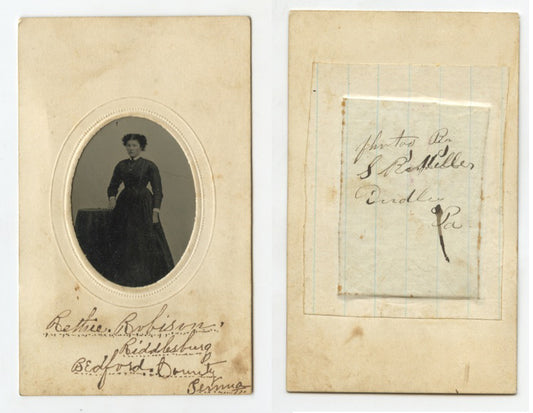 Rettie. Robison,
Riddlesburg
Bedford. County
Penna
photos By
S R Miller
Dudley
Pa